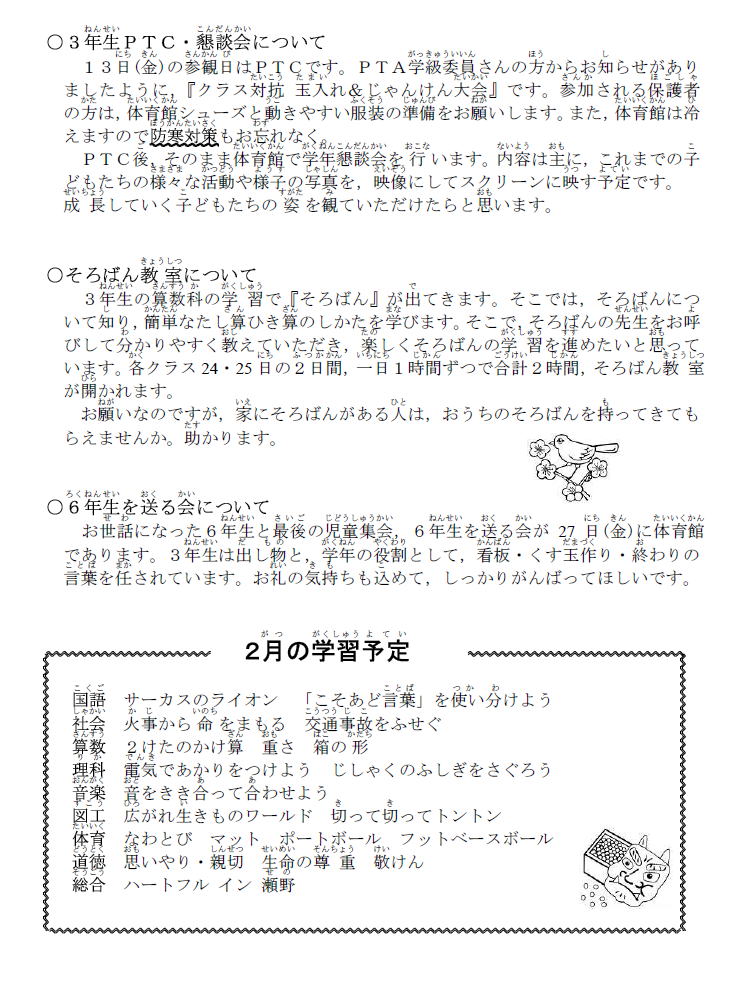 ○３年生ＰＴＣ・懇談会について
１３日(金)の参観日はＰＴＣです。ＰＴＡ学級委員さんの方からお知らせがあり
ましたように，『クラス対抗 玉入れ＆じゃんけん大会』です。参加される保護者
の方は，体育館シューズと動きやすい服装の準備をお願いします。また，体育館は冷
えますので防寒対策もお忘れなく。
ＰＴＣ後，そのまま体育館で学年懇談会を行います。内容は主に，これまでの子
どもたちの様々な活動や様子の写真を，映像にしてスクリーンに映す予定です。
成長していく子どもたちの姿を観ていただけたらと思います。
○そろばん教室について
３年生の算数科の学習で『そろばん』が出てきます。そこでは，そろばんにつ
いて知り，簡単なたし算ひき算のしかたを学びます。そこで，そろばんの先生をお呼
びして分かりやすく教えていただき，楽しくそろばんの学習を進めたいと思って
います。各クラス24・25日の２日間，一日１時間ずつで合計２時間，そろばん教室
が開かれます。
お願いなのですが，家にそろばんがある人は，おうちのそろばんを持ってきても
らえませんか。助かります。
○６年生を送る会について
お世話になった６年生と最後の児童集会，６年生を送る会が 27 日(金)に体育館
であります。３年生は出し物と，学年の役割として，看板・くす玉作り・終わりの
言葉を任されています。お礼の気持ちも込めて，しっかりがんばってほしいです。
２月の学習予定
国語　サーカスのライオン　「こそあど言葉」を使い分けよう
社会　火事から命をまもる　交通事故をふせぐ
算数　２けたのかけ算　重さ　箱の形
理科　電気であかりをつけよう　じしゃくのふしぎをさぐろう
音楽　音をきき合って合わせよう
図工　広がれ生きものワールド　切って切ってトントン
体育　なわとび　マット　ポートボール　フットベースボール
道徳　思いやり・親切　生命の尊重　敬けん
総合　ハートフル イン 瀬野